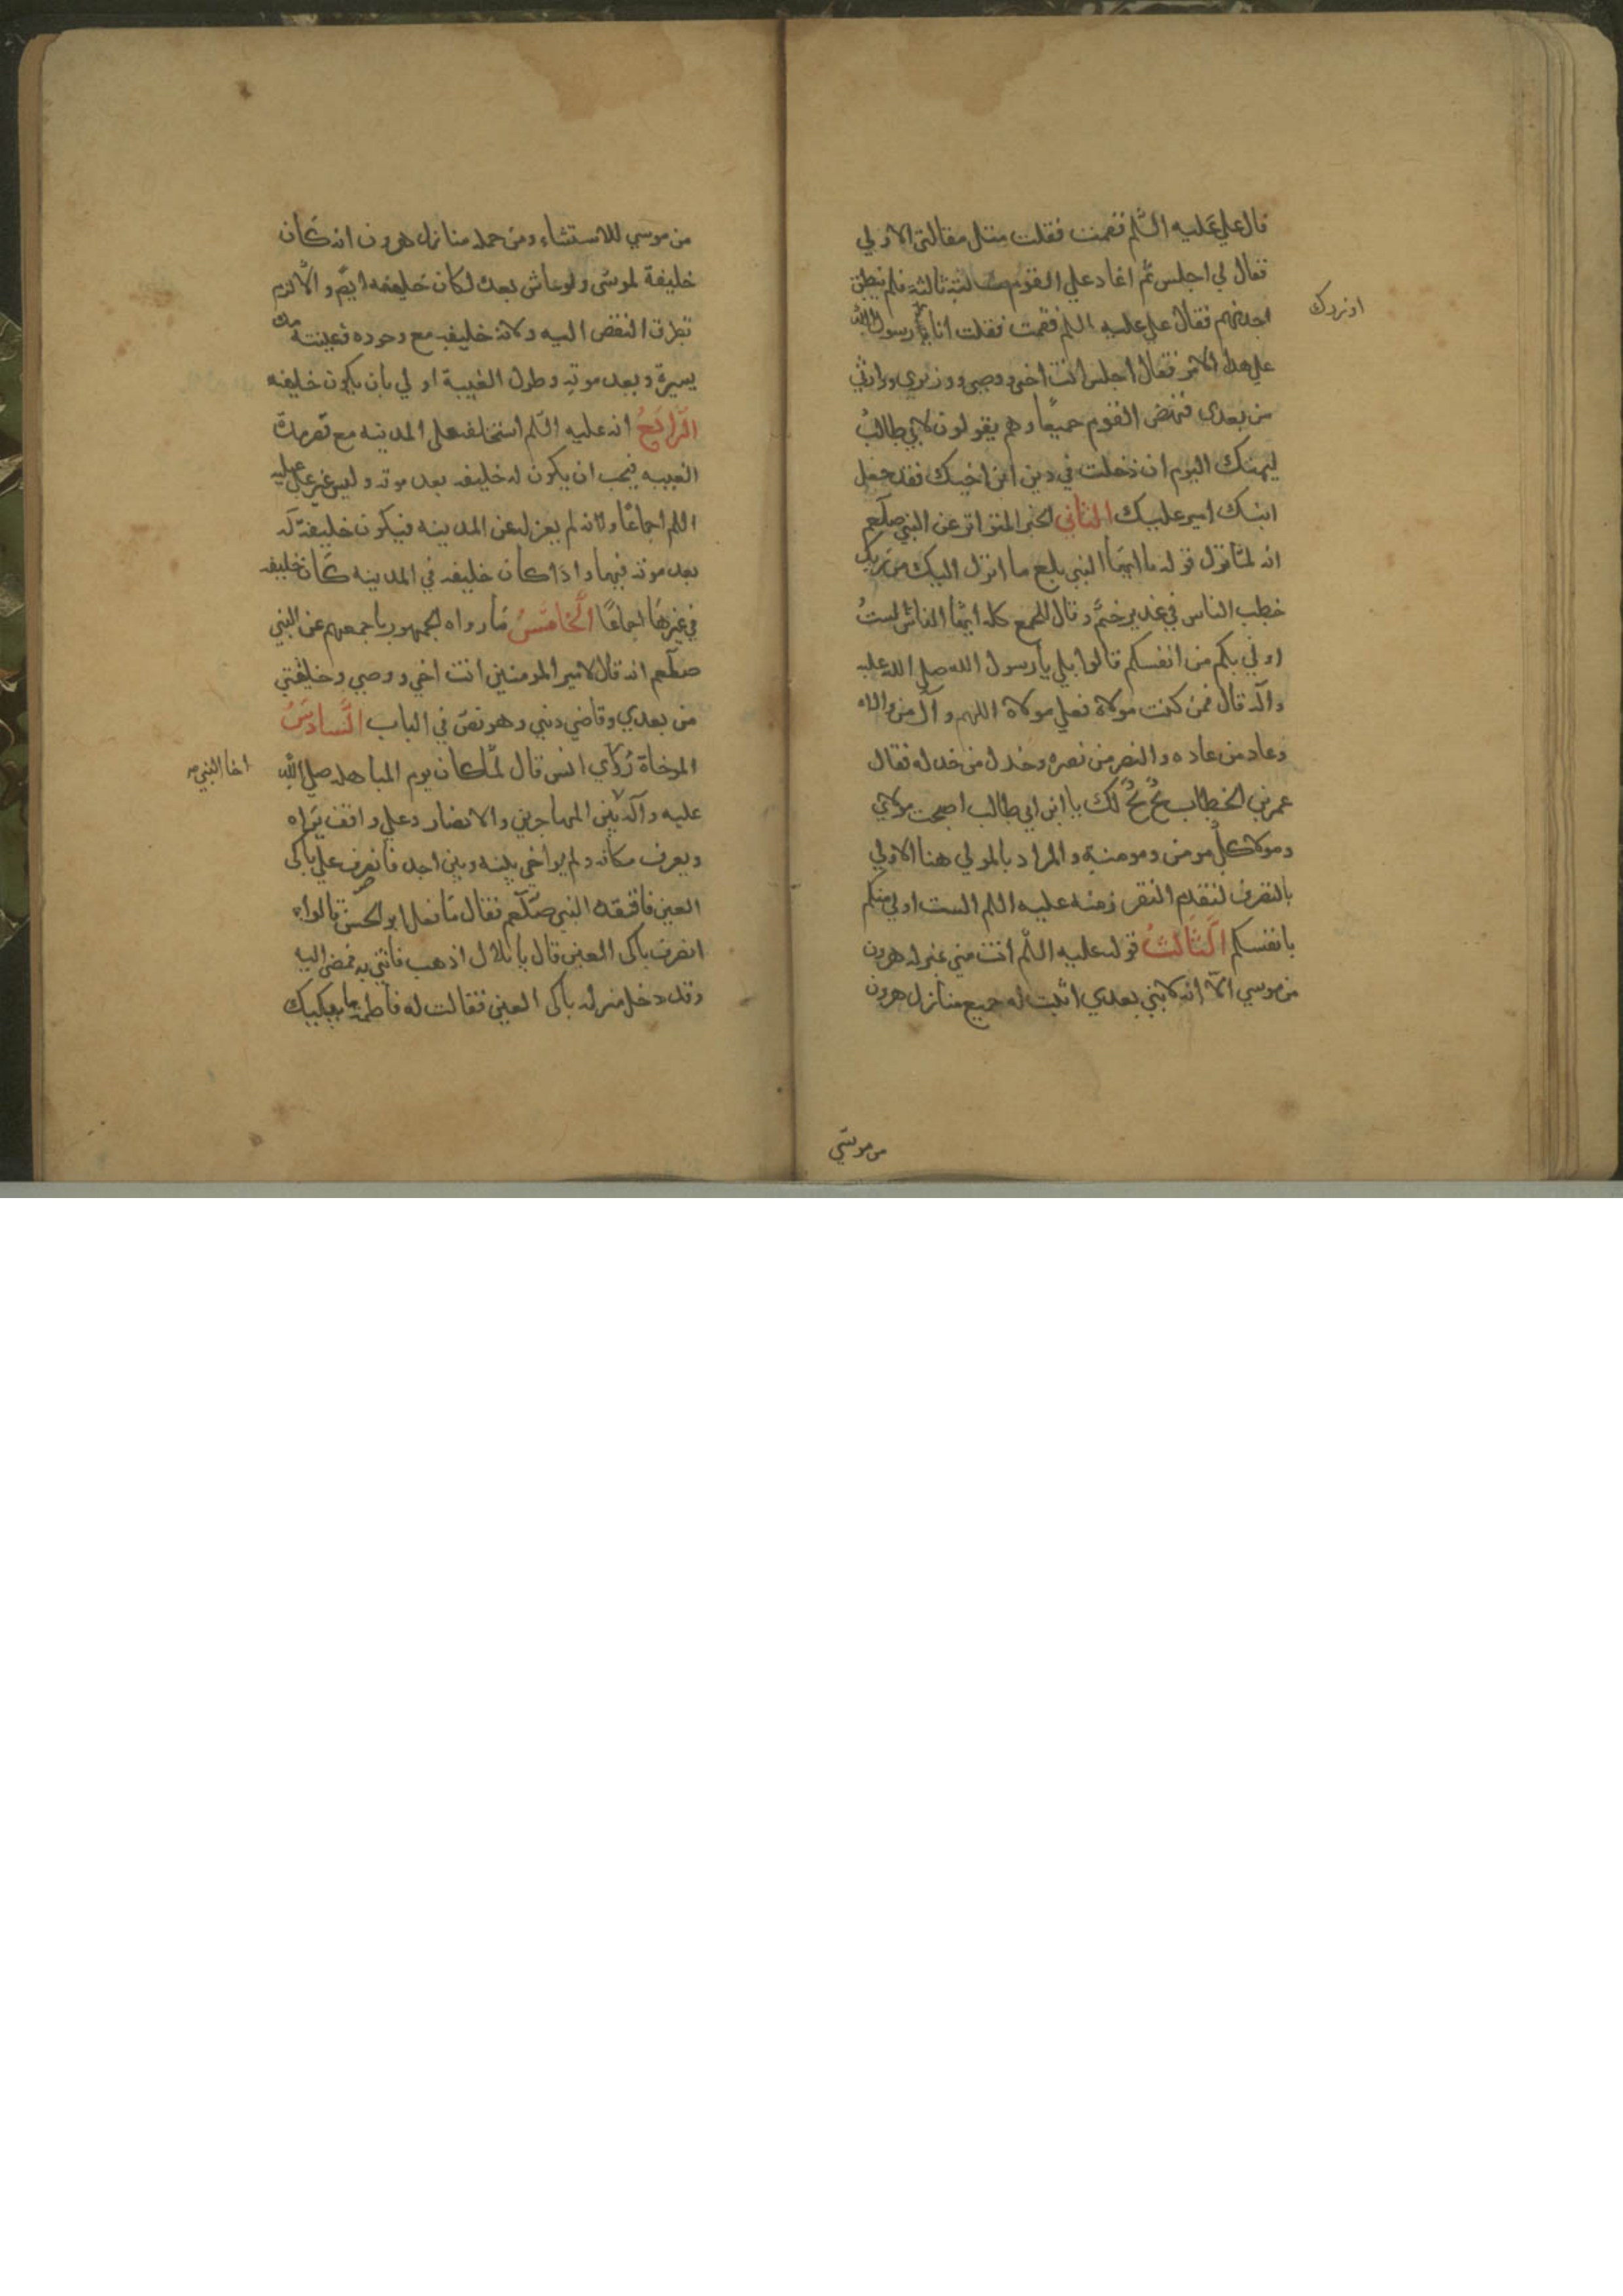 قال علي عليه السلم فقمت فقلت مثل مقالتي الاولي
فقال لي اجلس ثم اعاد علي القوم مقالته ثالثة فلم ينطق
احد منهم فقال علي عليه السلم فقمت فقلت انا يا رسول الله
اوزرك
علي هذا الامر فقال اجلس انت اخي ووصي ووزيري ووارثي
من بعدي فنهض القوم جميعًا وهم يقولون لابي طالب
ليهنك اليوم ان دخلت في دين ابن اخيك فقد جعل
ابنك امير عليك الثاني الخبر المتواتر عن النبي صلعم
انه لمّا نزل قوله يا ايها النبي بلغ ما انزل اليك من ربك
خطب الناس في غدير خمّ وقال للجمع كله ايها الناس الستُ
اولي بكم من انفسكم قالوا بلي يا رسول الله صلي الله عليه
وآله قال فمن كنت مولاه فعلي مولاه اللهم وآل من والاه
وعاد من عاده وانصر من نصره وخذل من خذله فقال
عمر بن الخطاب بخٍ بخٍ لك يا ابن ابي طالب اصبحت مولاي
ومولا كلّ مومن ومومنة والمراد بالمولي هنا الاولي
بالتصرف لتقدم التقرر منه عليه السلم الست اولي منكم
بانفسكم الثّالثُ قوله عليه السلم انت مني بمنزله هرون
من موسي الّا انه لا نبي بعدي اثبت له جميع منازل هرون
من موسي
من موسي للاستثناء ومن جمله منازل هرون انه كان
خليفة لموسى ولو عاش بعده لكان خليفه ايضا والّا لزم
تطرق النقض اليه ولانه خليفه مع وجوده وغيبته مدة
يسيرة وبعد موته وطول الغيبة اولي بان يكون خليفه
الرّابعُ انه عليه السّلم استخلفه علي المدينه مع قصر مدة
الغيبه فيجب ان يكون له خليفه بعد موته وليس غير علي عليه
السلم اجماعًا ولانه لم يعزله عن المدينه فيكون خليفة له
بعد موته فيها واذا كان خليفه في المدينه كان خليفه
في غيرها اجماعًا الخامسُ ما رواه الجمهور باجمعهم عن النبي
صلعم انه قال لامير المومنين انت اخي ووصي وخليفتي
من بعدي وقاضي ديني وهو نصّ في الباب السّادسُ
المواخاة روي انس قال لمّا كان يوم المباهله صلي الله
اخا النبي ص
عليه وآله بين المهاجرين والانصار وعلي واقف يراه
ويعرف مكانه ولم يواخي بينه وبين احد فانصرف علي باكى
العين فافتقده النبي صلعم فقال ما فعل ابو الحسن قالوا
انصرف باكى العين قال يا بلال اذهب فاتني به فمضى اليه
وقد دخل منزله باكى العين فقالت له فاطمه ما يبكيك